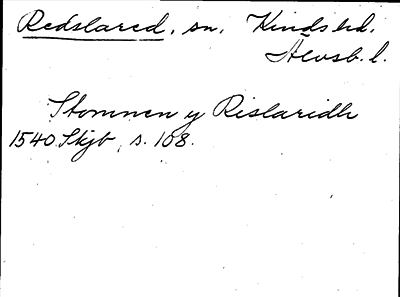 Redslared, sn. Kinds hd.
Älvsb. l.
Stommen y Rislaridh
1540 Skjb, s. 108.